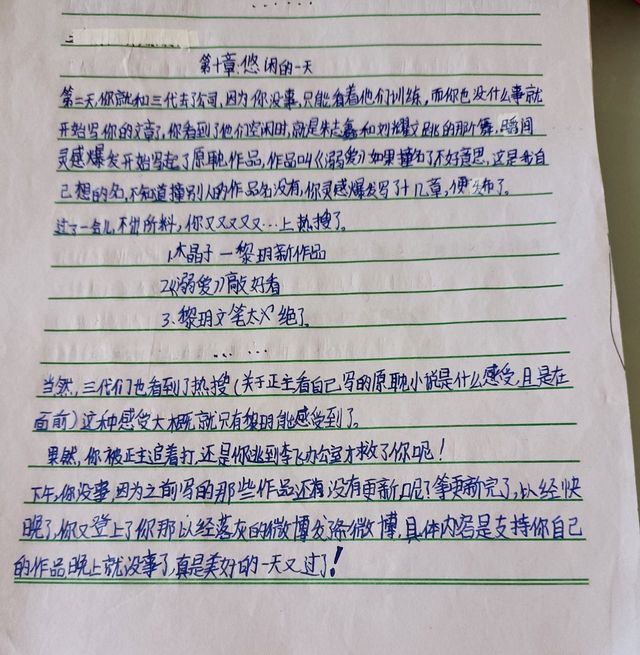 第十章.悠闲的一天
第二天,你就和三代去了公司,因为你没事,只能看着他们训练,而你也没什么事就
开始写你的文章了,你看到了他们空闲时,就是朱志鑫和刘耀文跳的那个舞,瞬间
灵感爆发开始写起了原耽作品,作品叫《溺爱》如果撞名了不好意思,这是我自
己想的名,不知道撞别人的作品名没有,你灵感爆发写了十几章,便发布了。
过了一会儿,不出所料,你又又又又…上热搜了。
1.木晶子一黎玥新作品
2.《溺爱》敲好看
3.黎玥文笔太又绝了。
……
当然,三代们也看到了热搜(关于正主看自己写的原耽小说是什么感受,且是在
面前)这种感受大概就只有黎玥能感受到了。
果然,你被正主追着打,还是你逃到李飞办公室才救了你呢!
下午,你没事,因为之前写的那些作品还有没有更新呢?等更新完了,以经快
晚了,你又登上了你那以经落灰的微博发了条微博,具体内容是支持你自己
的作品,晚上就没事了,真是美好的一天又过了!